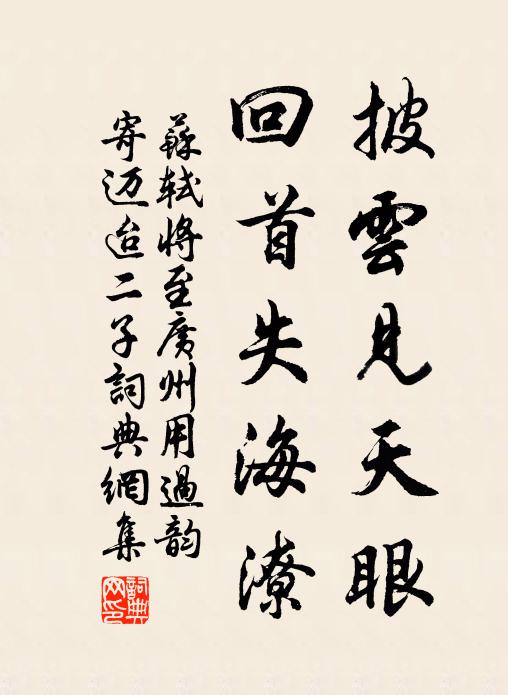 披雲見天眼
回首失海潦
蘇軾將至廣州用過韵
寄迈迨二子詞典網集
詞典網印